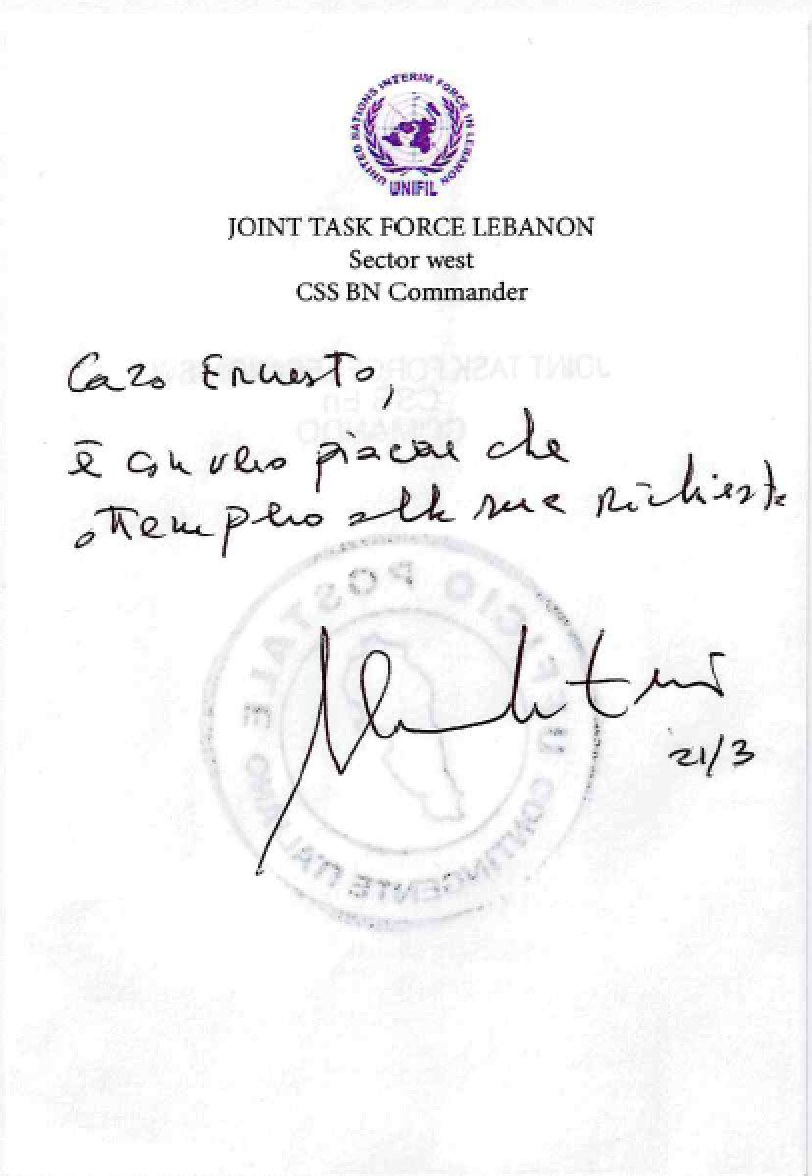 UNITED NATIONS INTERIM FORCE IN LEBANON
UNIFIL
JOINT TASK FORCE LEBANON
Sector west
CSS BN Commander
Caro Ernesto,
è con vero piacere che
ottempero alla sua richiesta
21/3
UFFICIO POSTALE
CONTINGENTE ITALIANO
JOINT TASK FORCE
CSS Bn
COMANDO